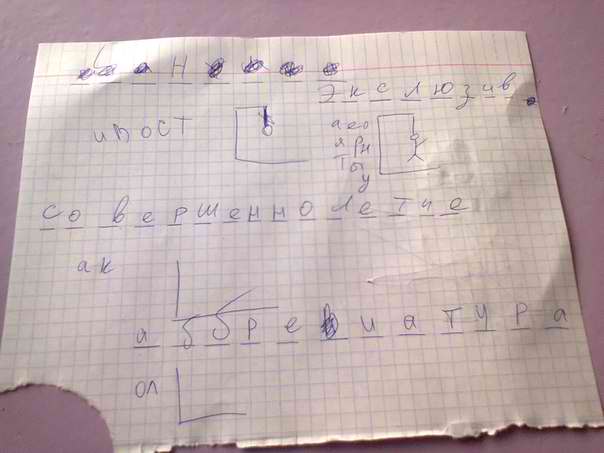 Н
Э к с л ю з и в
и п о с т
а е о
я р н
т ы
у
с о в е р ш е н н о л е т и е
а к
а б б р е в и а т у р а
о л